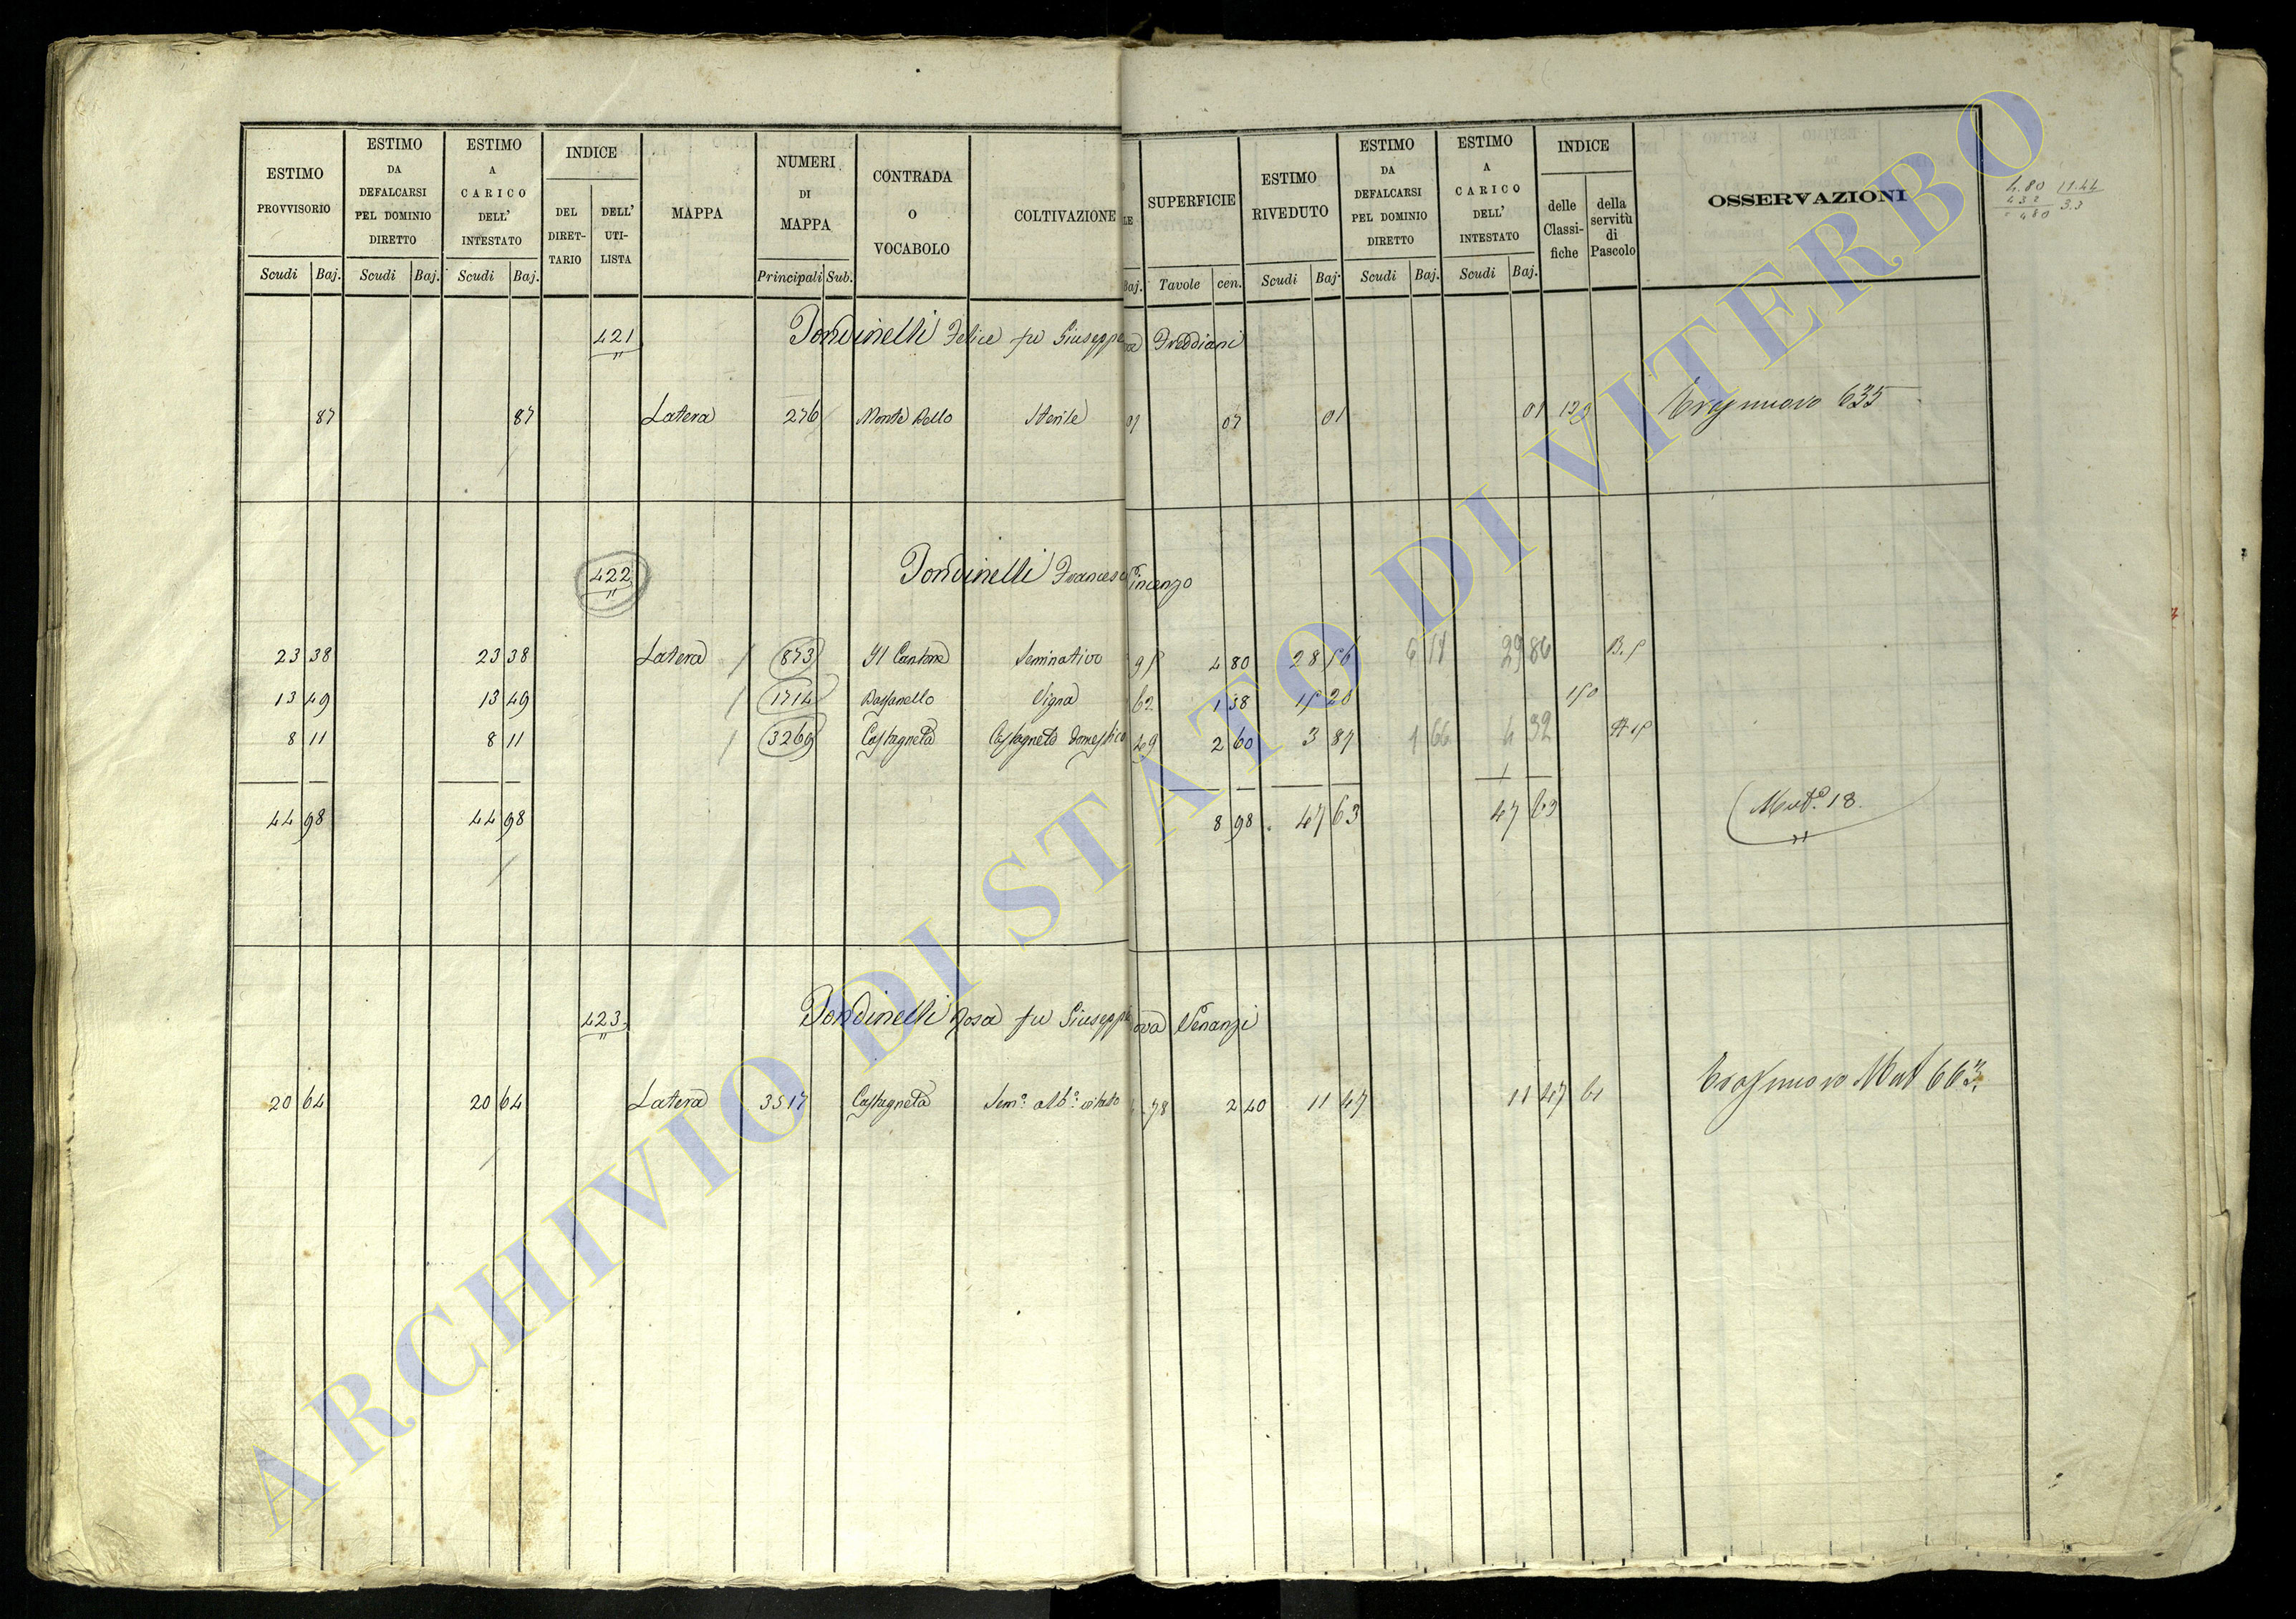 ESTIMO PROVVISORIO
ESTIMO DA DEFALCARSI PEL DOMINIO DIRETTO
ESTIMO A CARICO DELL' INTESTATO
INDICE
DEL DIRET- TARIO
DELL' UTI- LISTA
MAPPA
NUMERI DI MAPPA
CONTRADA O VOCABOLO
COLTIVAZIONE
LE
SUPERFICIE
ESTIMO RIVEDUTO
ESTIMO DA DEFALCARSI PEL DOMINIO DIRETTO
ESTIMO A CARICO DELL' INTESTATO
INDICE
delle Classi- fiche
della servitù di Pascolo
OSSERVAZIONI
4.80 11.44
432 3.3
480
Scudi Baj. Scudi Baj. Scudi Baj. Principali Sub. Baj. Tavole cen. Scudi Baj. Scudi Baj. Scudi Baj.
421 Tondinelli Felice fu Giuseppe
87 87 Latera 276 Monte Bello Sterile 07 01 01
422 Tondinelli Francesco Vincenzo
23 38 23 38 Latera 873 Il Cantone Seminativo 4 80 28 56 29 86 B.5
13 49 13 49 1714 Vigna 62 1 38 15 20 150
8 11 8 11 3269 Castagneta Castagneto domestico 49 2 60 3 87 1 66 4 32
44 98 44 98 8 98 47 63 47 63 Mut.e 18
423 Tondinelli Rosa fu Giuseppe Venanzi
20 64 20 64 Latera 3517 Castagneta Sem.o alb.o vitato 78 2 40 11 47 11 47 61
ARCHIVIO DI STATO DI VITERBO